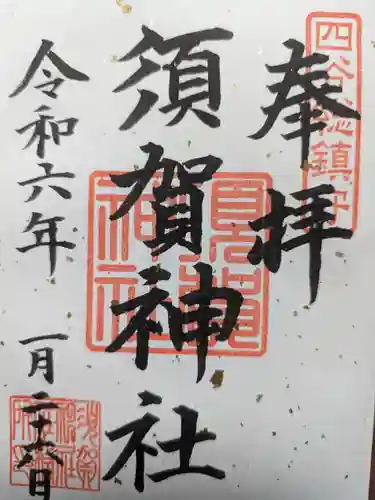 四谷總鎮守
奉拝
須賀神社
須賀神社
令和六年
一月二十六日